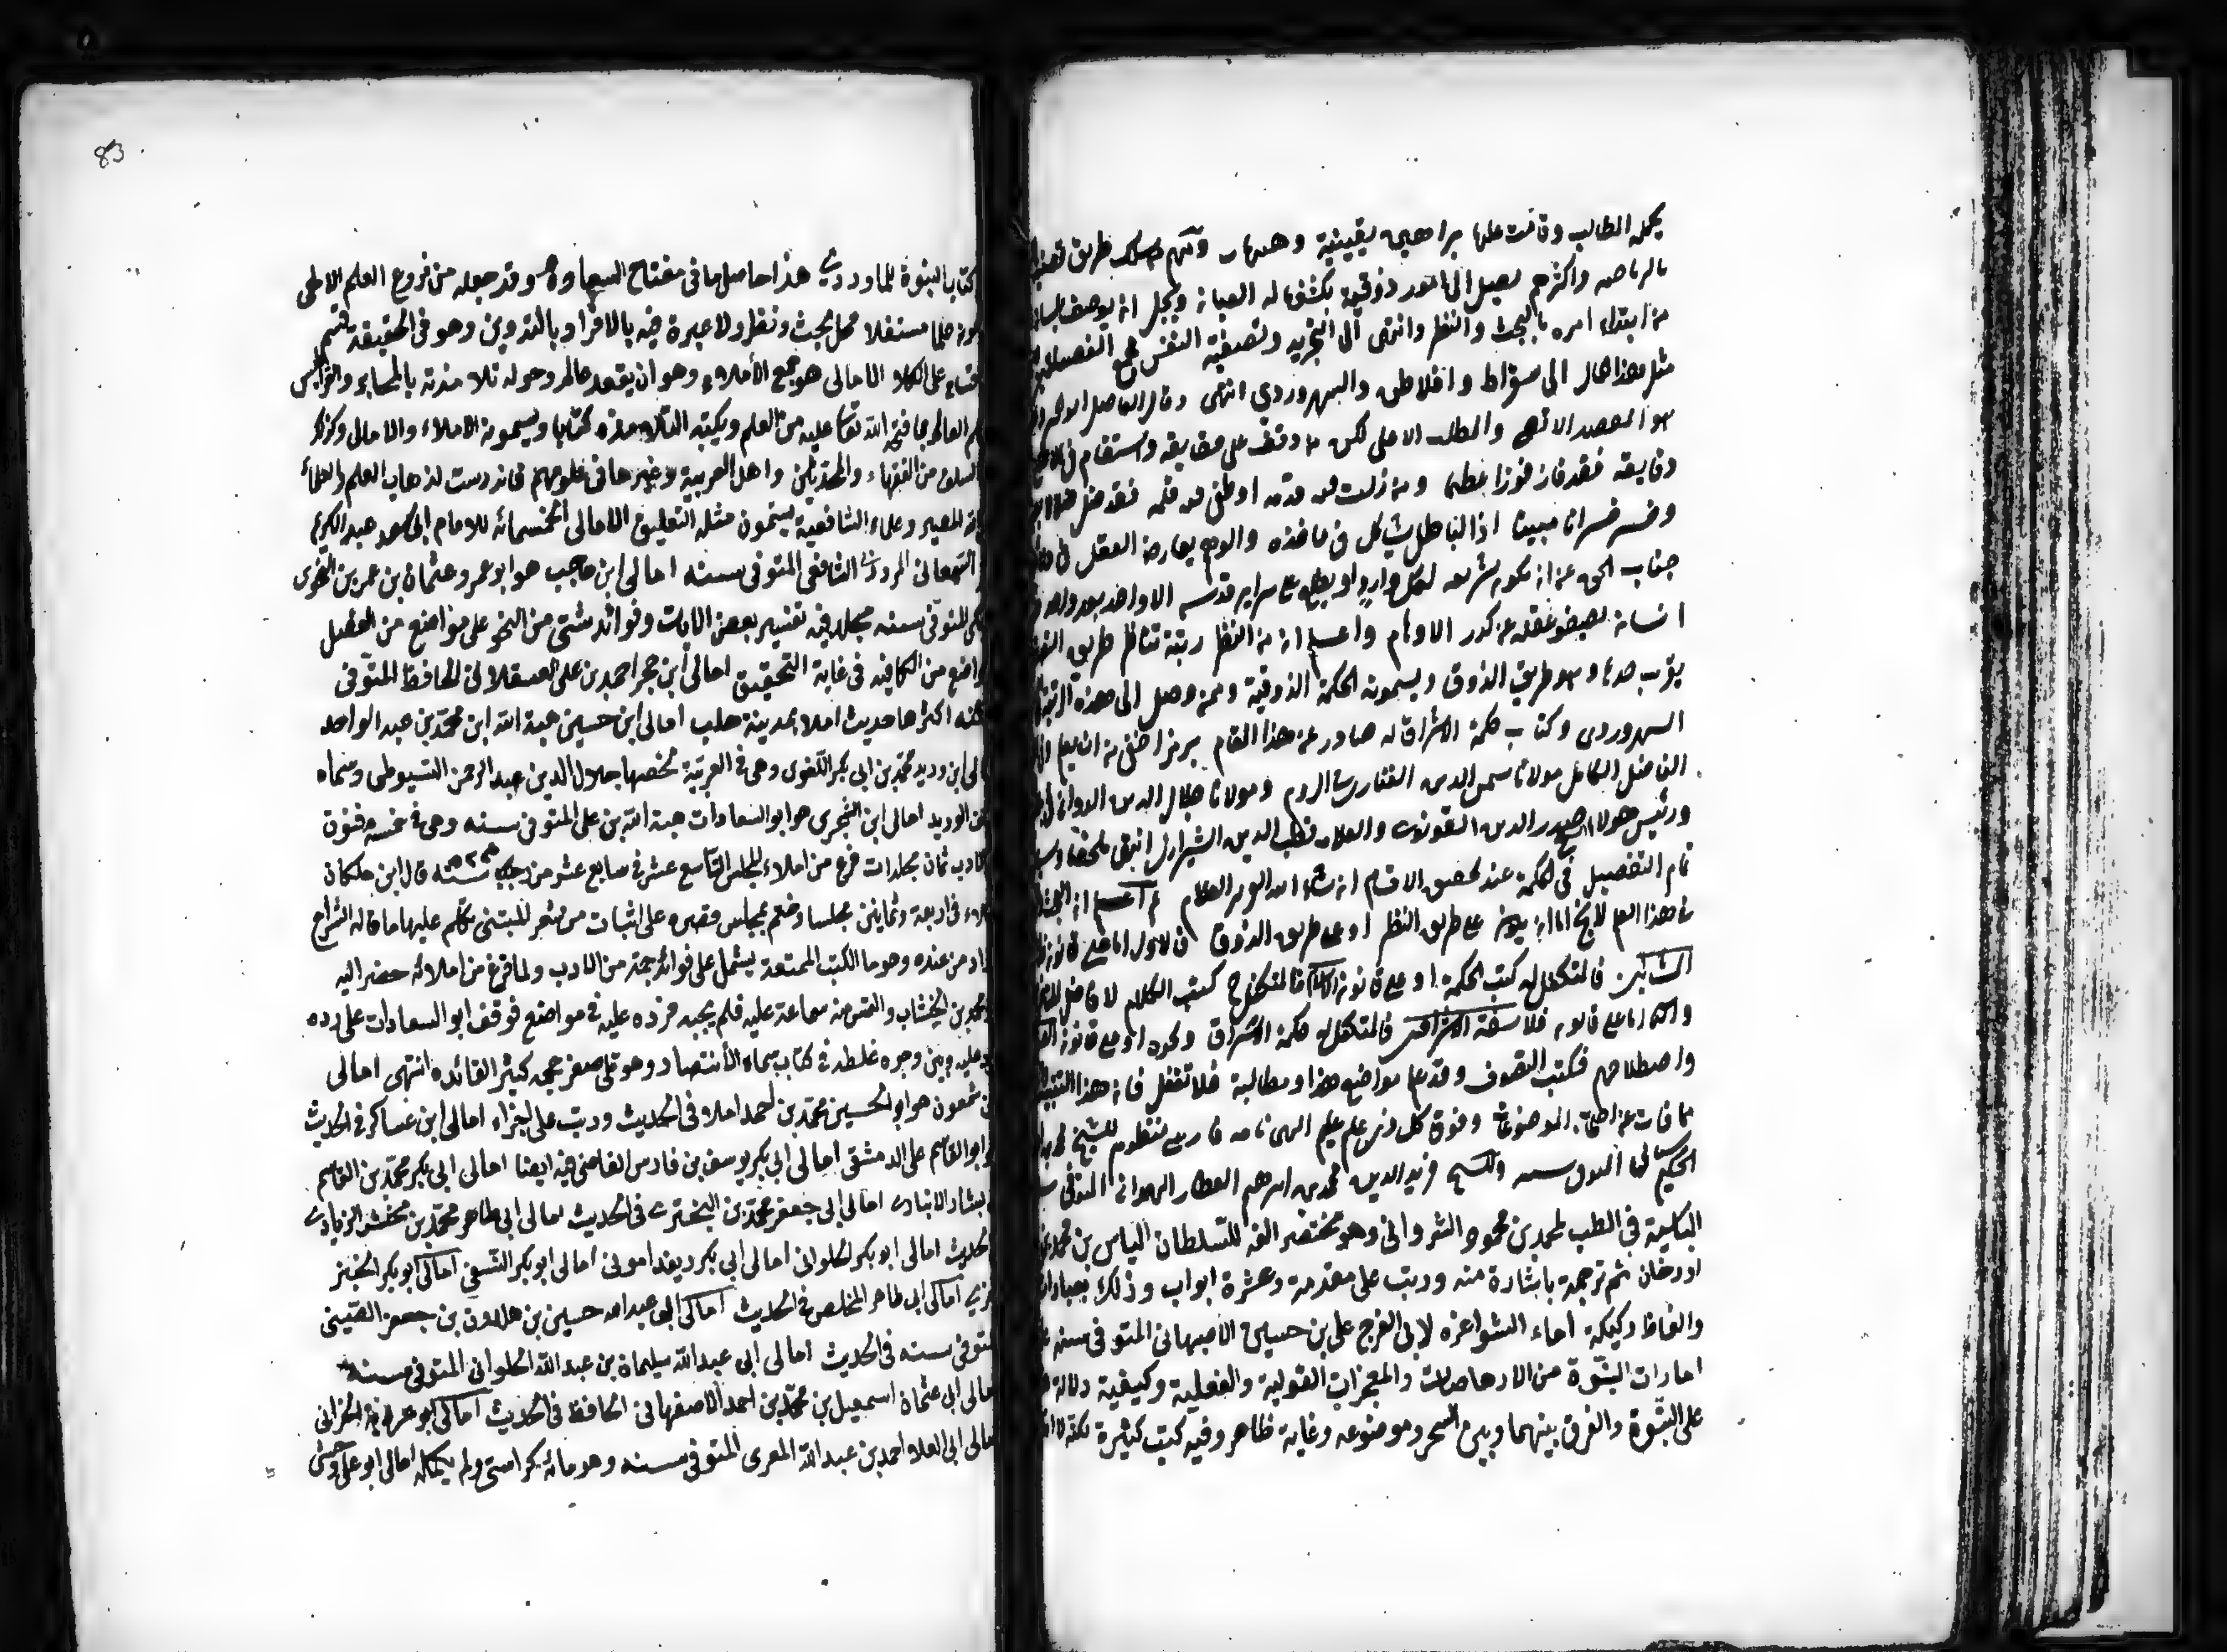 يحمله الطالب وقامت عليها براهين يقينية وهيهات ومنهم من سلك طريق تصفية
بالرياضة واكثرهم يصل الى امور ذوقية يكشفها له العيان ويجل ان يوصف بلسان
من ابتداء امره بالبحث والنظر وانتهى الى التجريد وتصفية النفس فجمع الفضيلتين
مثل هذا الحال الى سقراط وافلاطن والسهروردي انتهى وقال الفاضل ابو الخير
هو المقصد الاقصى والمطلب الاعلى لكن من وقف على حقايقه واستقام في
دقايقه فقد فاز فوزا عظيما ومن زلت فيه قدمه او طغى فيه قلمه فقد ضل ضلالا
وخسر خسرانا مبينا اذ الباطل يشاكل في ماخذه والوهم يعارض العقل في
جناب الحق عن ان يكون شريعة لكل وارد او يطلع على سراير قدسه الا واحد بعد واحد
انسان يصفو عقله عن كدر الاوهام واعلم ان من النظر رتبة تناظر طريق
يقرب حدها وهو طريق الذوق ويسمونه الحكمة الذوقية وممن وصل الى هذه الرتبة
السهروردي وكتاب حكمة الاشراق له صادر عن هذا المقام برمز اخفى من ان يعلم
الفاضل الكامل مولانا شمس الدين الفناري بالروم ومولانا جلال الدين الدواني
ورئيس هؤلاء الشيخ صدر الدين القونوي والعلامة قطب الدين الشيرازي انتهى ملخصا
تمام التفصيل في الحكمة عند تحقيق الاقسام ان شاء الله العزيز العلام ثم اعلم ان البحث
في هذا العلم لا يخ اما ان يكون على طريق النظر او على طريق الذوق فالاول اما على قانون
المشائين فالمتكفل له كتب الحكمة او على قانون الكلام فالمتكفل ح كتب الكلام لافاضل
والثاني اما على قانون فلاسفة الاشراقيين فالمتكفل له حكمة الاشراق ونحوه او على قانون
واصطلاحهم فكتب التصوف وقد علم مواضع هذا ومطالبه فلا تغفل فان هذا التنبيه
مما فات عن اصحاب الموضوعات وفوق كل ذي علم عليم الهى نامه فارسي منظوم للشيخ
الحكيم سنائي المتوفى سنه وللشيخ فريد الدين محمد بن ابرهيم العطار الهمداني المتوفى
الياسية في الطب لمحمد بن محمود الشرواني وهو مختصر الفه للسلطان الياس بن محمد
اورخان ثم ترجمه باشارة منه ورتب على مقدمة وعشرة ابواب وذلك بعبارات
والفاظ ركيكة اماء الشواعره لابى الفرج على بن حسين الاصبهانى المتوفى سنه
امارات النبوّة من الارهاصات والمعجزات القولية والفعلية وكيفية دلالة
على النبّوة والفرق بينهما وبين السحر وموضوعه وغاية ظاهر وفيه كتب كثيرة
كتاب النبوة للماوردى هذا حاصل ما فى مفتاح السعادة وقد جعله من فروع العلم الالهى
علما مستقلا محل بحث ونظر ولا عبرة فيه بالافراد بالتدوين وهو فى الحقيقة
على الكلا الامالى هو جمع الأملاء وهو ان يقعد عالم وحوله تلامذته بالمحابر والقراطيس
العالم بما فتح الله تعا عليه من العلم ويكتبه التلامذه كتابا ويسمونه الاملاء والامالى وكذلك
السلف من الفقهاء والمحدثين واهل العربية وغيرها فى علومهم فاندرست لذهاب العلم والعلماء
المصير وعلماء الشافعية يسمون مثله التعليق الامالى الخمسمائه للامام ابى سعد عبد الكريم
السمعانى المروزى الشافعى المتوفى سنه امالى ابن حاجب هو ابو عمرو عثمان بن عمر بن النحوى
المتوّفى سنه مجلد فيه تفسير بعض الايات وفوائد شتى من النحو على مواضع من المفصل
مواضع من الكافيه فى غاية التحقيق امالى ابن حجر احمد بن على العسقلانى الحافظ المتوّفى
سنه اكثرها حديث املاء بمدينة حلب امالى ابن حسين هبة الله ابن محمّد بن عبد الواحد
امالى ابن دريد محمّد بن ابى بكر اللّغوى وهى فى العربيّة لخصها جلال الدين عبد الرحمن السّيوطى وسماه
الوريد امالى ابن الشجرى هو ابو السعادات هبة الله بن على المتوفى سنه وهى فى خمسة فنون
الادب ثمان مجلدات فرغ من املاء المجلس التاسع عشر فى سابع عشر من رجب سنه ٥٢٣ قال ابن خلكان
املاه فى اربعة وثمانين مجلسا وختم بمجلس قصره على ابيات من شعر المتنبى تكلم عليها ما قاله الشراح
وزاد من عنده وهو من الكتب الممتعة يشتمل على فوائد جمّة من الادب ولما فرغ من املائه حضر اليه
ابو محمد بن الخشاب والتمس منه سماعه عليه فلم يجبه فرده عليه فى مواضع فوقف ابو السعادات على رده
فرد عليه وبين وجوه غلطه فى كتاب سماه الأنتصار وهو على صغر حجمه كثير الفائده انتهى امالى
ابن شمعون هو ابو الحسين محمّد بن احمد املاء فى الحديث ورتب على اجزاء امالى ابن عساكر فى الحديث
ابو القاسم على الدمشقى امالى ابى بكر يوسف بن فارس القاضى فيه ايضا امالى ابى بكر محمّد بن القاسم
بن بشار الانبارى امالى ابى جعفر محمّد بن البخترى فى الحديث امالى ابى طاهر محمّد بن محمش الزيادى
الحديث امالى ابو بكر الحلوانى امالى ابى بكر امالى ابو بكر النسفى امالى ابو بكر الخنز
امالى ابى طاهر المخلص فى الحديث امالى ابى عبد الله حسين بن هارون بن جعفر الضبى
المتوفى سنه فى الحديث امالى ابى عبد الله سليمان بن عبد الله الحلوانى المتوفى سنه
امالى ابى عثمان اسمعيل بن محمّد بن احمد الاصفهانى الحافظ فى الحديث امالى ابو عروبة الحرانى
امالى ابى العلا احمد بن عبد الله المعرى المتوفى سنه وهو مائة كراسة ولم يكمله امالى ابو على وحشى
83